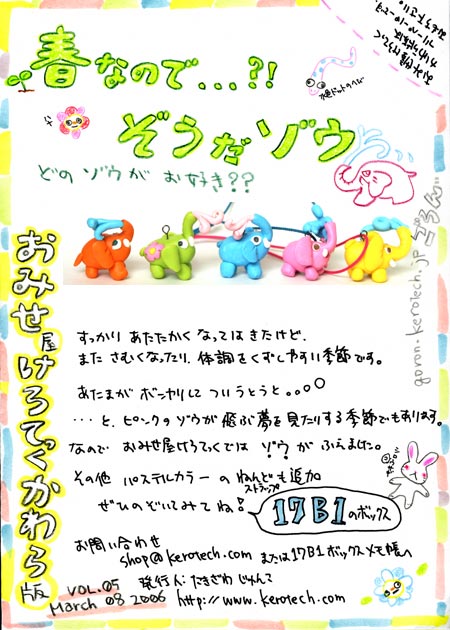 春なので...?!
ぞうだゾウ
どのゾウが お好き??
水色ドットのへび
goron.kerotech.jp ごろん
おみせ屋けろてっくかわら版
すっかり あたたかく なってはきたけど、
また さむくなったり、体調をくずしやすい季節です。
あたまが ボーッヤリして ついうとうと。。。
・・・と、ピンクのゾウが飛ぶ夢を見たりする季節でもあります。
なので おみせ屋けろてっくでは ゾウ が ふえました。
その他 パステルカラー の ねんども追加
ぜひのぞいてみてね!
ストラップ
17B1のボックス
お問い合わせ
shop@kerotech.com または17B1ボックスメモ帳へ
発行人: たきざわ じゅんこ
http://www.kerotech.com
VOL.05
March 08 2006